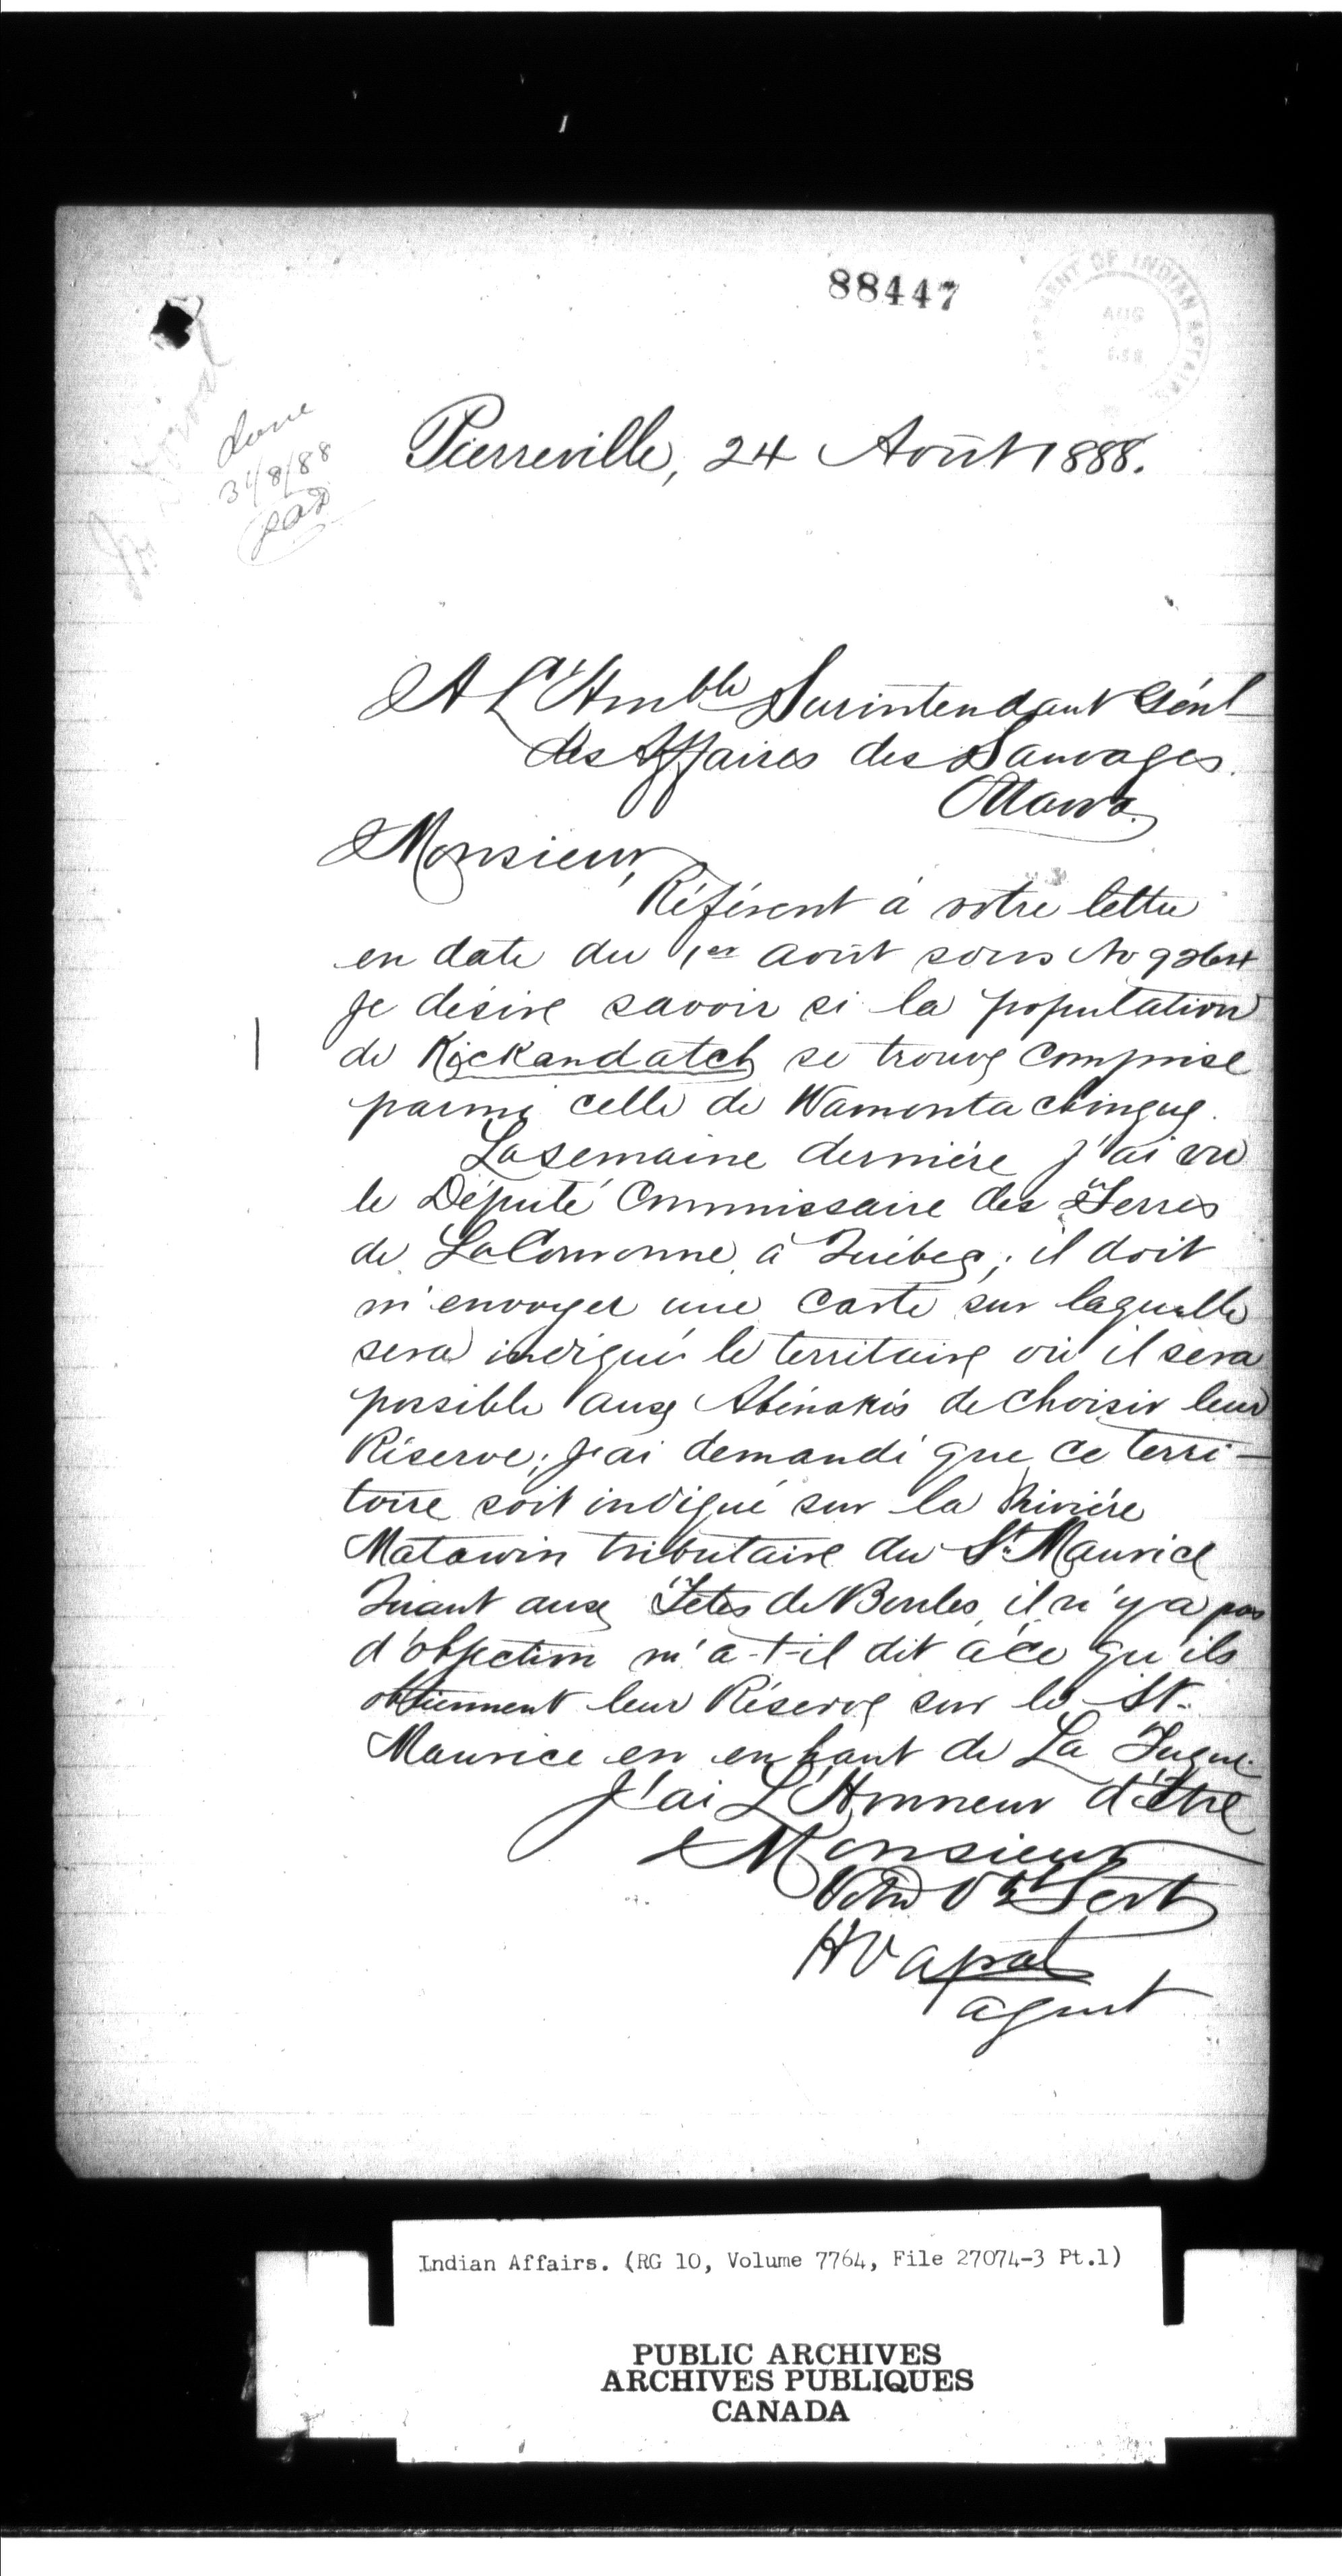 88447
DEPARTMENT OF INDIAN AFFAIRS
AUG
1888
Done
31/8/88
Pierreville, 24 Août 1888.
A L'Hnble Surintendant Génl
des Affaires des Sauvages.
Ottawa
Monsieur,
Référent à votre lettre
en date du 1er Août sous No
je désire savoir si la population
de Kickandatch se trouve comprise
parmi celle de Wamontachingue.
La semaine dernière j'ai vu
le Député Commissaire des Terres
de La Couronne à Québec; il doit
m'envoyer une Carte sur laquelle
sera indiqué le territoire où il sera
possible aux Abénakis de choisir leur
Réserve; J'ai demandé que ce terri-
toire soit indiqué sur la Rivière
Matawin tributaire du St. Maurice
Quant aux Têtes de Boules, il n'y a pas
d'objection m'a-t-il dit à ce qu'ils
obtiennent leur Réserve sur le St.
Maurice en en haut de La Tuque.
J'ai L'Honneur d'être
Monsieur
Votre Obt Servt
H Vassal
agent
Indian Affairs. (RG 10, Volume 7764, File 27074-3 Pt.1)
PUBLIC ARCHIVES
ARCHIVES PUBLIQUES
CANADA